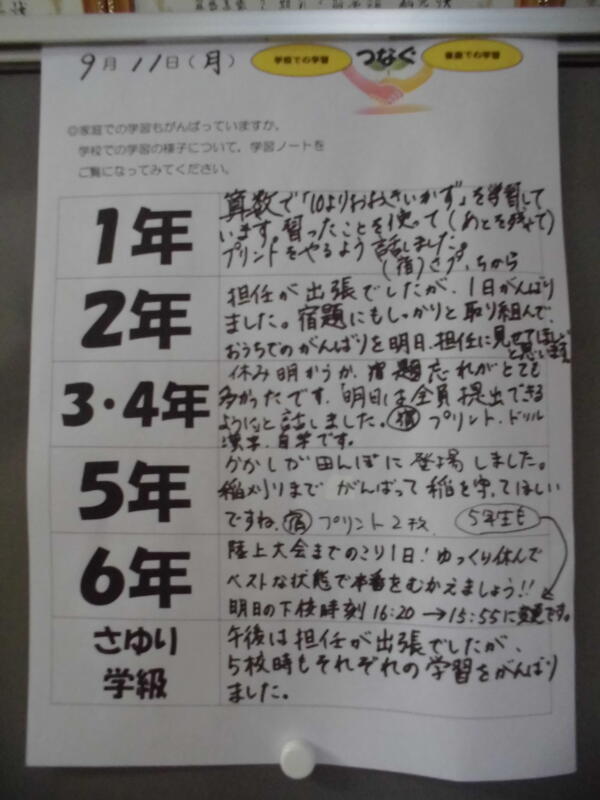 9月11日(月)
学校での学習 つなぐ 家庭での学習
◎家庭での学習もがんばっていますか。
学校での学習の様子について、学習ノートを
ご覧になってみてください。
1年
算数で「10よりおおきいかず」を学習して
います。習ったことを使って(あとを残して)
プリントをやるよう話しました。
(宿)さプ、ちから
2年
担任が出張でしたが、1日がんばり
ました。宿題にもしっかりと取り組んで、
おうちでのがんばりを明日、担任に見せてほしい
と思います。
3・4年
休み明かうか、宿題忘れがとても
多かったです。明日は全員提出できる
ようにと話しました。宿 プリント、ドリル
漢字、自学です。
5年
かかしが田んぼに登場しました。
稲刈りまでがんばって稲を守ってほしい
ですね。宿 プリント2枚 5年生も
6年
陸上大会までのこり1日!ゆっくり休んで
ベストな状態で本番をむかえましょう!!
明日の下校時刻16:20→15:55に変更です。
さゆり
学級
午後は担任が出張でしたが、
5校時もそれぞれの学習をがんばり
ました。